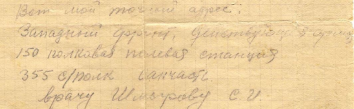 Вот мой точный адрес:
Западный фронт, действующая 5 армия
150 полковая полевая станция
355 с/полк санчасть
врачу С. И